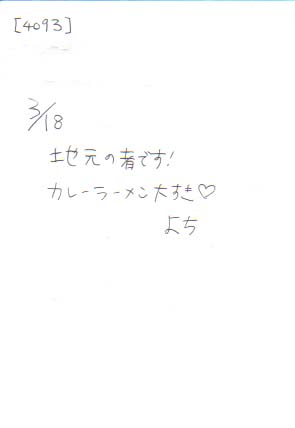 [4093]
3/18
地元の者です!
カレーラーメン大すき♡
よち